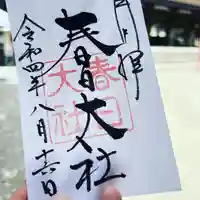 拝
春日大社
春日
大社
令和四年八月十六日